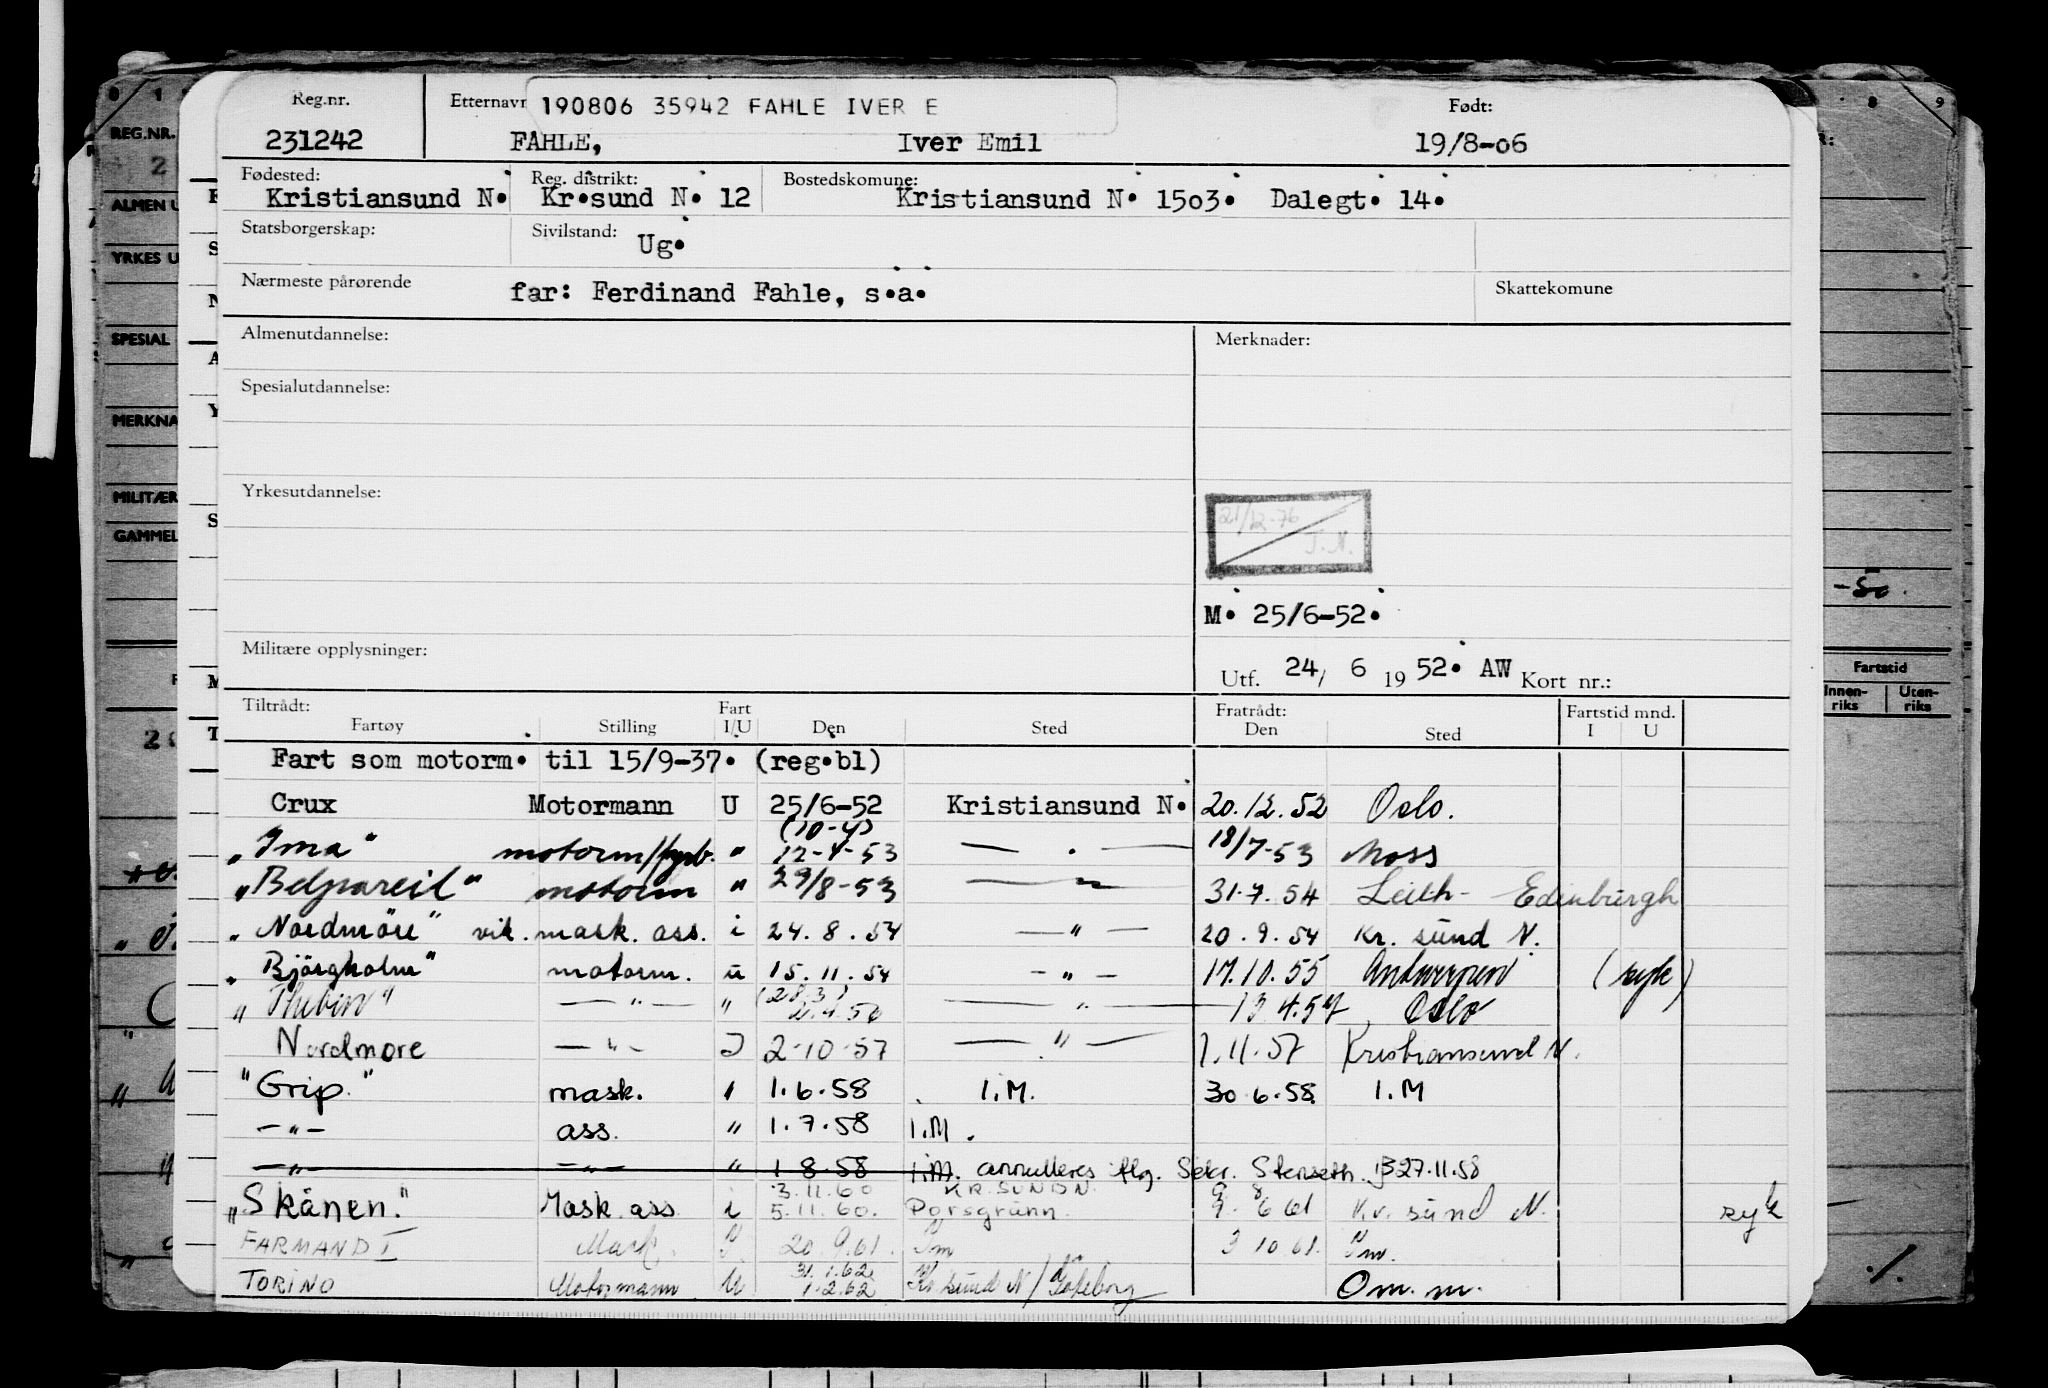 Reg.nr. Etternavn 190806 35942 FAHLE IVER E Født:
231242 FAHLE, Iver Emil 19/8-06
Fødested: Reg. distrikt: Bostedskomune:
Kristiansund N. Kr.sund N. 12 Kristiansund N. 1503. Dalegt. 14.
Statsborgerskap: Sivilstand: Ug.
Nærmeste pårørende far: Ferdinand Fahle, s.a. Skattekomune
Almenutdannelse: Merknader:
Spesialutdannelse:
Yrkesutdannelse:
21/12-76
J.N.
M. 25/6-52.
Militære opplysninger:
Utf. 24/ 6 19 52. AW Kort nr.:
Tiltrådt: Fart Fratrådt: Fartstid mnd.
Fartøy Stilling I/U Den Sted Den Sted I U
Fart som motorm. til 15/9-37. (reg.bl)
Crux Motormann U 25/6-52 Kristiansund N. 20.12.52 Oslo.
(10-4)
"Ima" motorm/fyrb. " 12-4-53 — " — 18/7-53 Moss
"Belpareil" motorm " 29/8-53 — " — 31.7.54 Leith - Edinburgh
"Nordmöre" vik. mask. ass. i 24.8.54 — " — 20.9.54 Kr. sund N.
"Björgholm" motorm. u 15.11.54 — " — 17.10.55 Antwerpen (syk)
(28.3)
— " — " — " — Oslo
Nordmore — " — I 2-10-57 — " — 1.11.57 Kristiansund N.
"Grip." mask. I 1.6.58 I.M. 30.6.58 I.M
— " — ass. " 1.7.58 I.M.
— " — — " — " 1.8.58 I.M. annulleres flg. Sekr. Stenseth. 27.11.58
3.11.60 KR.SUND N.
"Skånen." Mask. ass. i 5.11.60. Porsgrunn. 9. 6 61 Kr. sund N. syk
FARMAND I Mask. I 20.9.61. Im 3 10.61. Im.
31.1.62
TORINO Motormann U 1.2.62 Kr sund N / Göteborg Om. m.
REG.NR.
ALMEN U
YRKES U
SPESIAL
MERKNA
MILITÆR
GAMMEL
-50.
Fartstid
Innen-riks Uten-riks